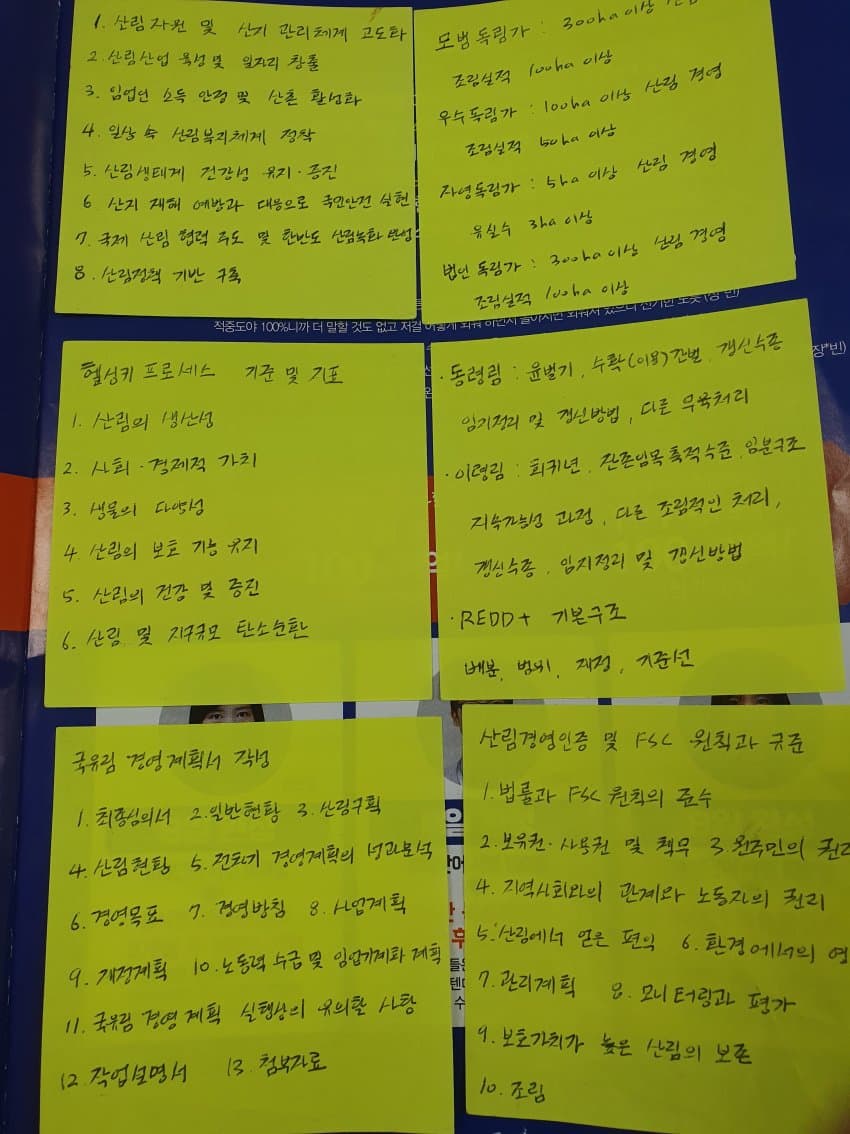 1. 산림자원 및 산지 관리체계 고도화
2. 산림산업 육성 및 일자리 창출
3. 임업인 소득 안정 및 산촌 활성화
4. 일상 속 산림복지체계 정착
5. 산림생태계 건강성 유지·증진
6 산지 재해 예방과 대응으로 국민안전 실현
7. 국제 산림 협력 주도 및 한반도 산림녹화
8. 산림정책 기반 구축
모범독림가 : 300ha 이상
조림실적 100ha 이상
우수독림가 : 100ha 이상 산림 경영
조림실적 50ha 이상
자영독림가 : 5ha 이상 산림 경영
유실수 3ha 이상
법인 독림가 : 300ha 이상 산림 경영
조림실적 100ha 이상
적중도야 100%니까 더 말할 것도 없고 저걸
장*빈)
헬싱키 프로세스 기준 및 지표
1. 산림의 생산성
2. 사회·경제적 가치
3. 생물의 다양성
4. 산림의 보호 기능 유지
5. 산림의 건강 및 증진
6. 산림 및 지구규모 탄소순환
·동령림 : 윤벌기, 수확(이용)간벌, 갱신수종
임지정리 및 갱신방법, 다른 무육처리
·이령림 : 회귀년, 잔존임목 축적수준, 임분구조
지속가능성 과정, 다른 조림적인 처리,
갱신수종, 임지정리 및 갱신방법
·REDD+ 기본구조
배분, 범위, 재정, 기준선
국유림 경영계획서 작성
1. 최종심의서 2. 일반현황 3. 산림구획
4. 산림현황 5. 전차기 경영계획의 성과분석
6. 경영목표 7. 경영방침 8. 사업계획
9. 재정계획 10. 노동력 수급 및 임업기계화 계획
11. 국유림 경영 계획 실행상의 유의할 사항
12. 작업설명서 13. 첨부자료
산림경영인증 및 FSC 원칙과 규준
1. 법률과 FSC 원칙의 준수
2. 보유권·사용권 및 책무 3. 원주민의 권리
4. 지역사회와의 관계와 노동자의 권리
5. 산림에서 얻은 편익 6. 환경에서의 영
7. 관리계획 8. 모니터링과 평가
9. 보호가치가 높은 산림의 보존
10. 조림